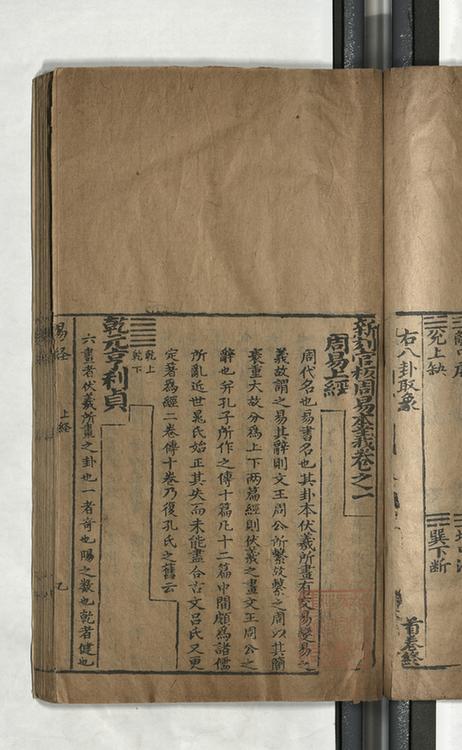 右八卦取象
兌上缺
巽下断
首卷終
新刻官板周易本義卷之一
周易上經
周代名也易書名也其卦本伏羲所畫有交易變易之
義故謂之易其辭則文王周公所繫故繫之周以其簡
袠重大故分爲上下兩篇經則伏羲之畫文王周公之
辭也并孔子所作之傳十篇凡十二篇中間頗爲諸儒
所亂近世晁氏始正其失而未能盡合古文呂氏又更
定著爲經二卷傳十卷乃復孔氏之舊云
乾上
乾下
乾元亨利貞
六畫者伏羲所畫之卦也一者奇也陽之數也乾者健也
易經
上經